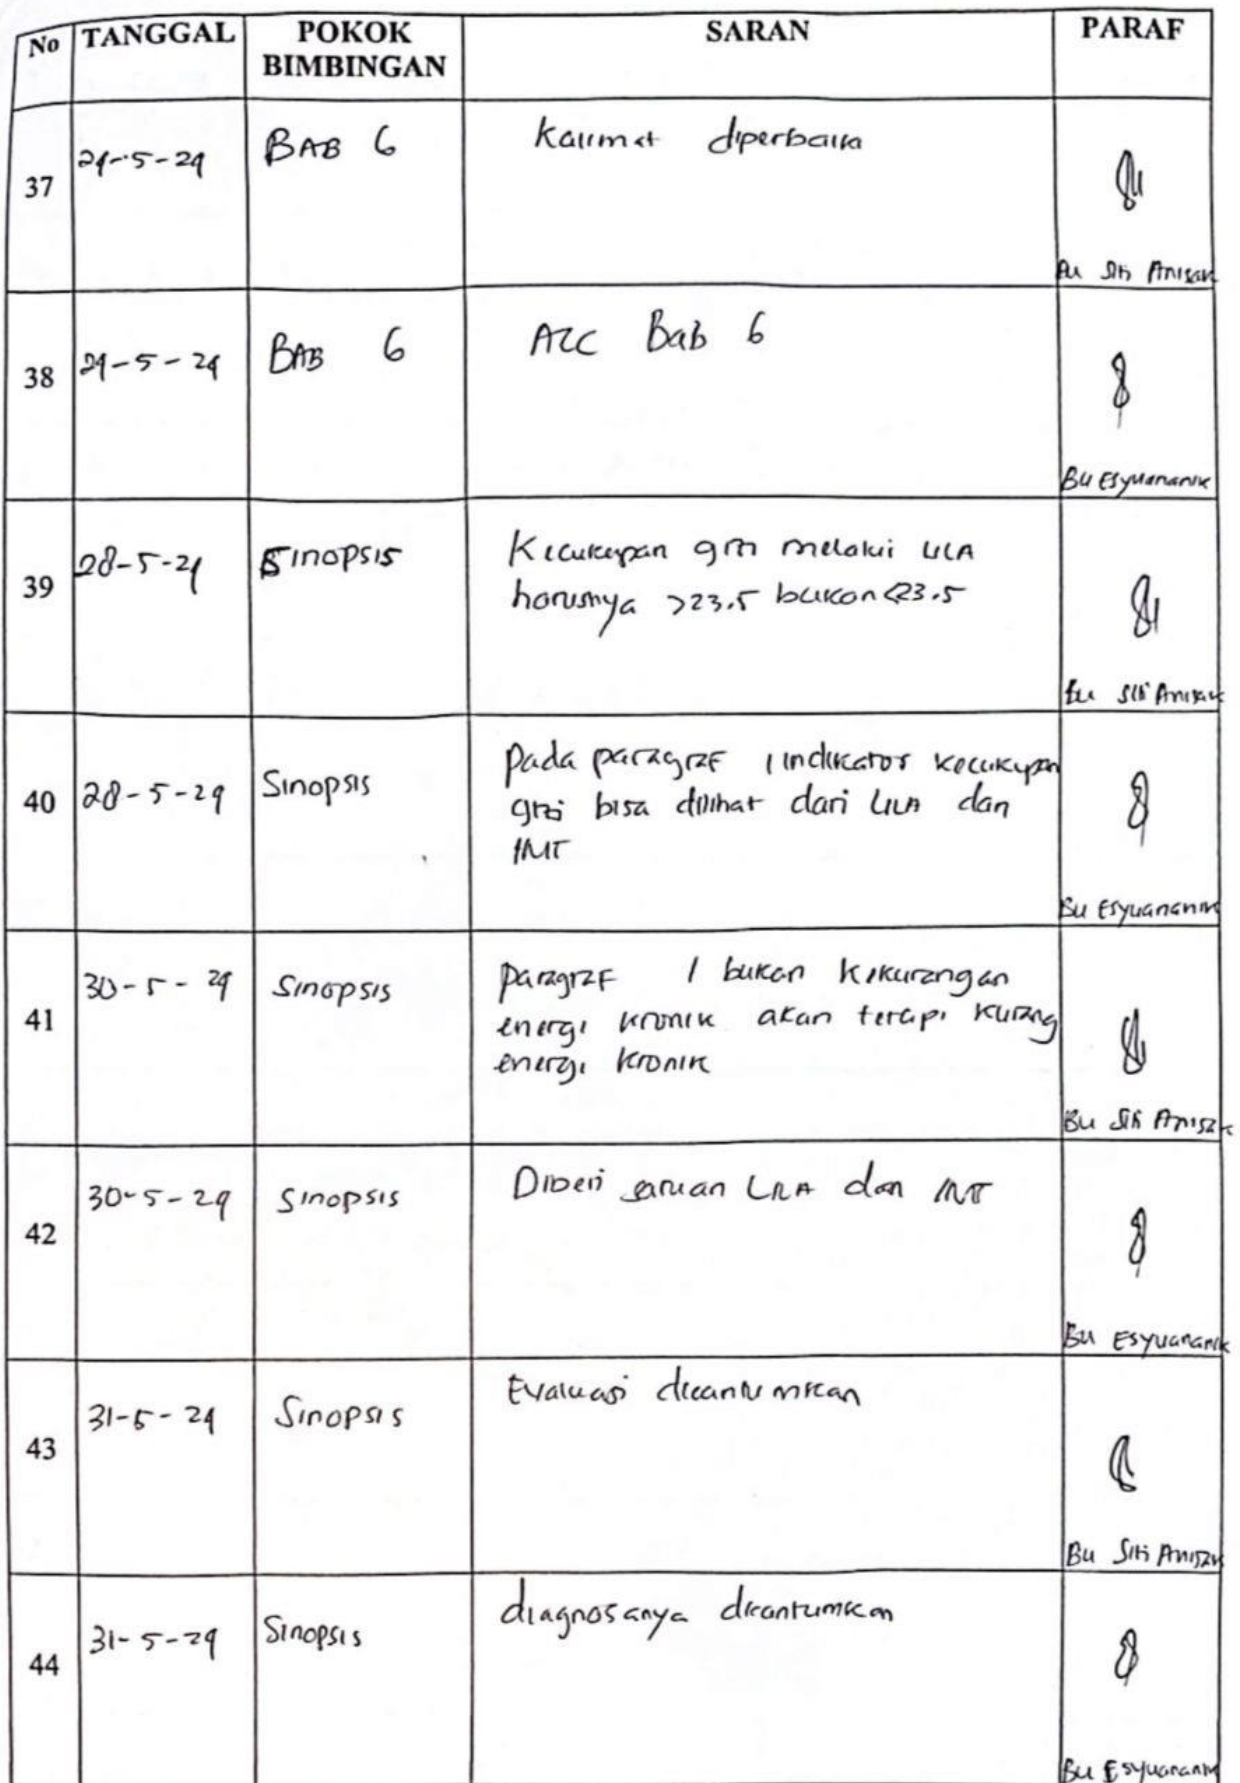 No TANGGAL POKOK BIMBINGAN SARAN PARAF
37 24-5-24 BAB 6 Kalimat diperbaiki
Bu Siti Anisah
38 24-5-24 BAB 6 ACC Bab 6
Bu Esyuananik
39 28-5-24 Sinopsis Kecukupan gizi melalui LILA
harusnya >23.5 bukan <23.5
Bu Siti Anisah
40 28-5-24 Sinopsis Pada paragraf 1 indikator kecukupan
gizi bisa dilihat dari LILA dan
IMT
Bu Esyuananik
41 30-5-24 Sinopsis Paragraf 1 bukan kekurangan
energi kronik akan tetapi kurang
energi kronik
Bu Siti Anisah
42 30-5-24 Sinopsis Diberi satuan LILA dan IMT
Bu Esyuananik
43 31-5-24 Sinopsis Evaluasi dicantumkan
Bu Siti Anisah
44 31-5-24 Sinopsis diagnosanya dicantumkan
Bu Esyuananik